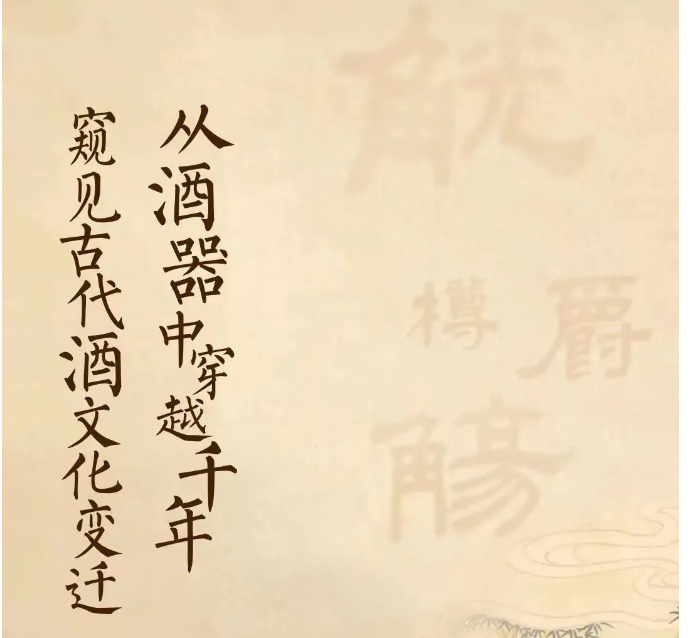 从酒器中穿越千年
窥见古代酒文化变迁
觥
樽
爵
觞